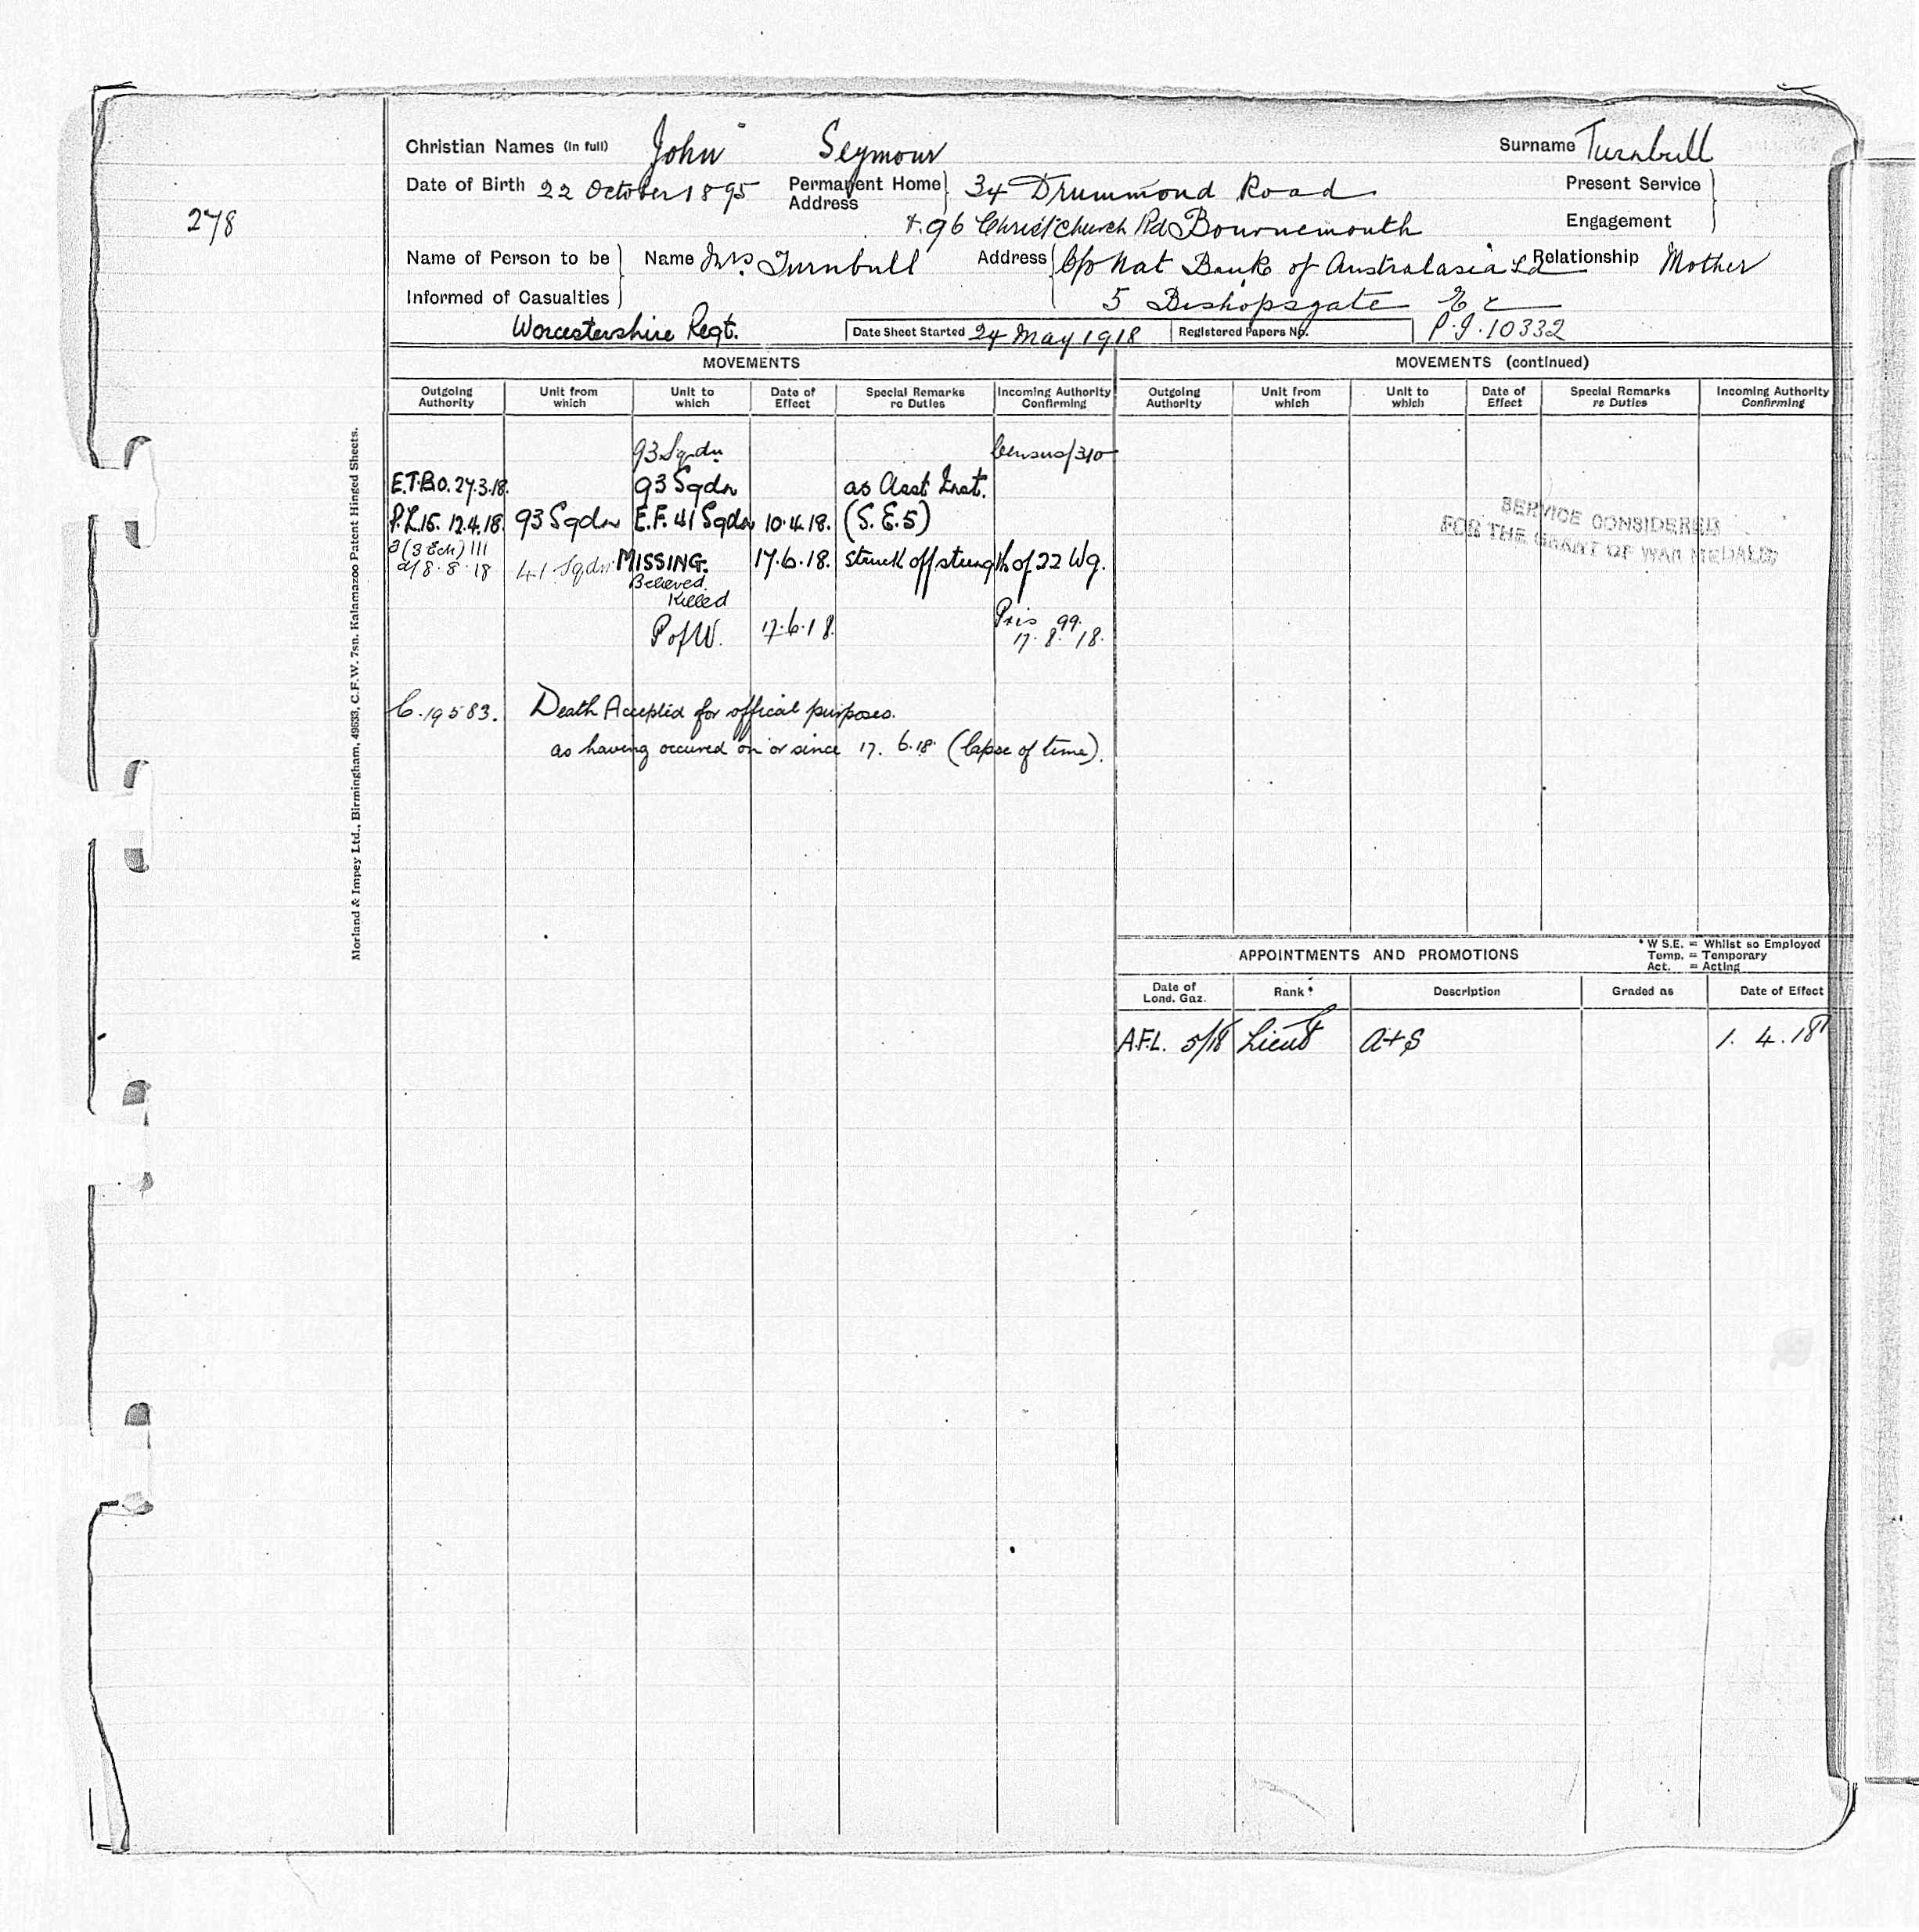 Christian Names (in full) John Seymour Surname Turnbull
Date of Birth 22 October 1895 Permanent Home Address 34 Drummond Road Present Service
278
+ 96 Christchurch Rd Bournemouth Engagement
Name of Person to be Informed of Casualties Name Mrs Turnbull Address C/o Nat Bank of Australasia Ld Relationship Mother
5 Bishopsgate E C
Worcestershire Regt. Date Sheet Started 24 May 1918 Registered Papers No. P.I.10332
MOVEMENTS
Outgoing Authority Unit from which Unit to which Date of Effect Special Remarks re Duties Incoming Authority Confirming
93 Sqdn Census/310
E.T.B.O. 27.3.18. 93 Sqdn as Asst Inst.
P.L.15. 12.4.18 93 Sqdn E.F. 41 Sqdn 10.4.18. (S.E.5)
(3 Ech) 111
d/8.8.18 41 Sqdn MISSING. 17.6.18. struck off strength of 22 Wg.
Believed
Killed
P of W. 17.6.18. Pris 99.
17.8.18.
C.19583. Death Accepted for offical purposes.
as having occured on or since 17.6.18. (lapse of time).
MOVEMENTS (continued)
Outgoing Authority Unit from which Unit to which Date of Effect Special Remarks re Duties Incoming Authority Confirming
SERVICE CONSIDERED
FOR THE GRANT OF WAR MEDALS
APPOINTMENTS AND PROMOTIONS
* W S.E. = Whilst so Employed
Temp. = Temporary
Act. = Acting
Date of Lond. Gaz. Rank * Description Graded as Date of Effect
A.F.L. 5/18 Lieut A+S 1.4.18
Morland & Impey Ltd., Birmingham, 49533, C.F.W. 7sn. Kalamazoo Patent Hinged Sheets.